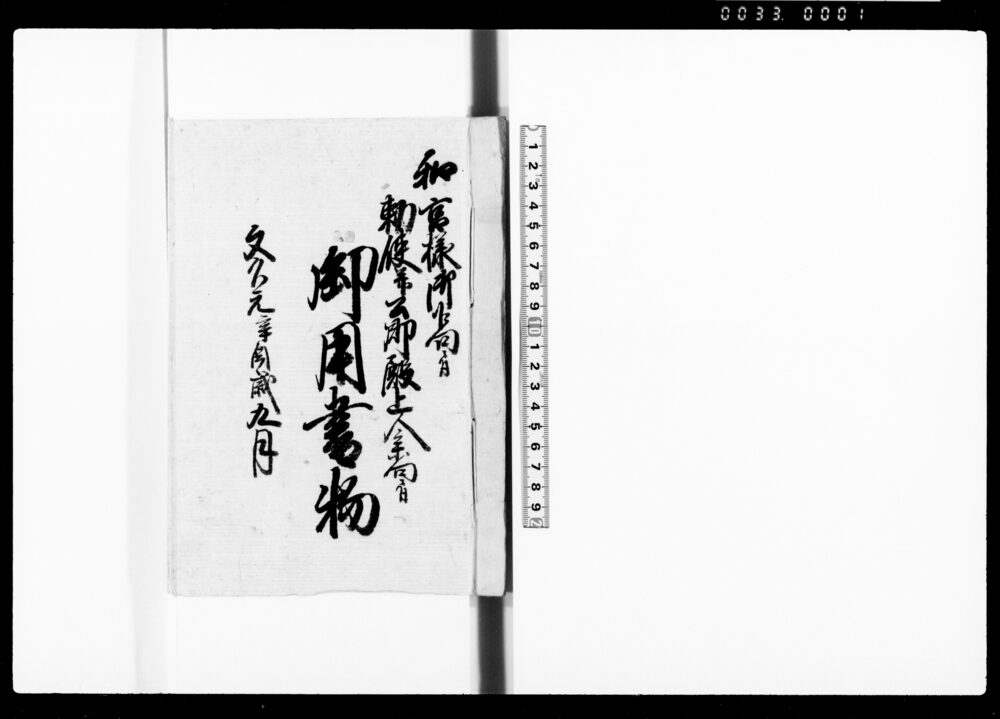 0033. 0001
和宮様御下向ニ付
勅使并公卿殿上人参向ニ付
御用書物
文久元辛酉歳九月
1 2 3 4 5 6 7 8 9 10 1 2 3 4 5 6 7 8 9 2